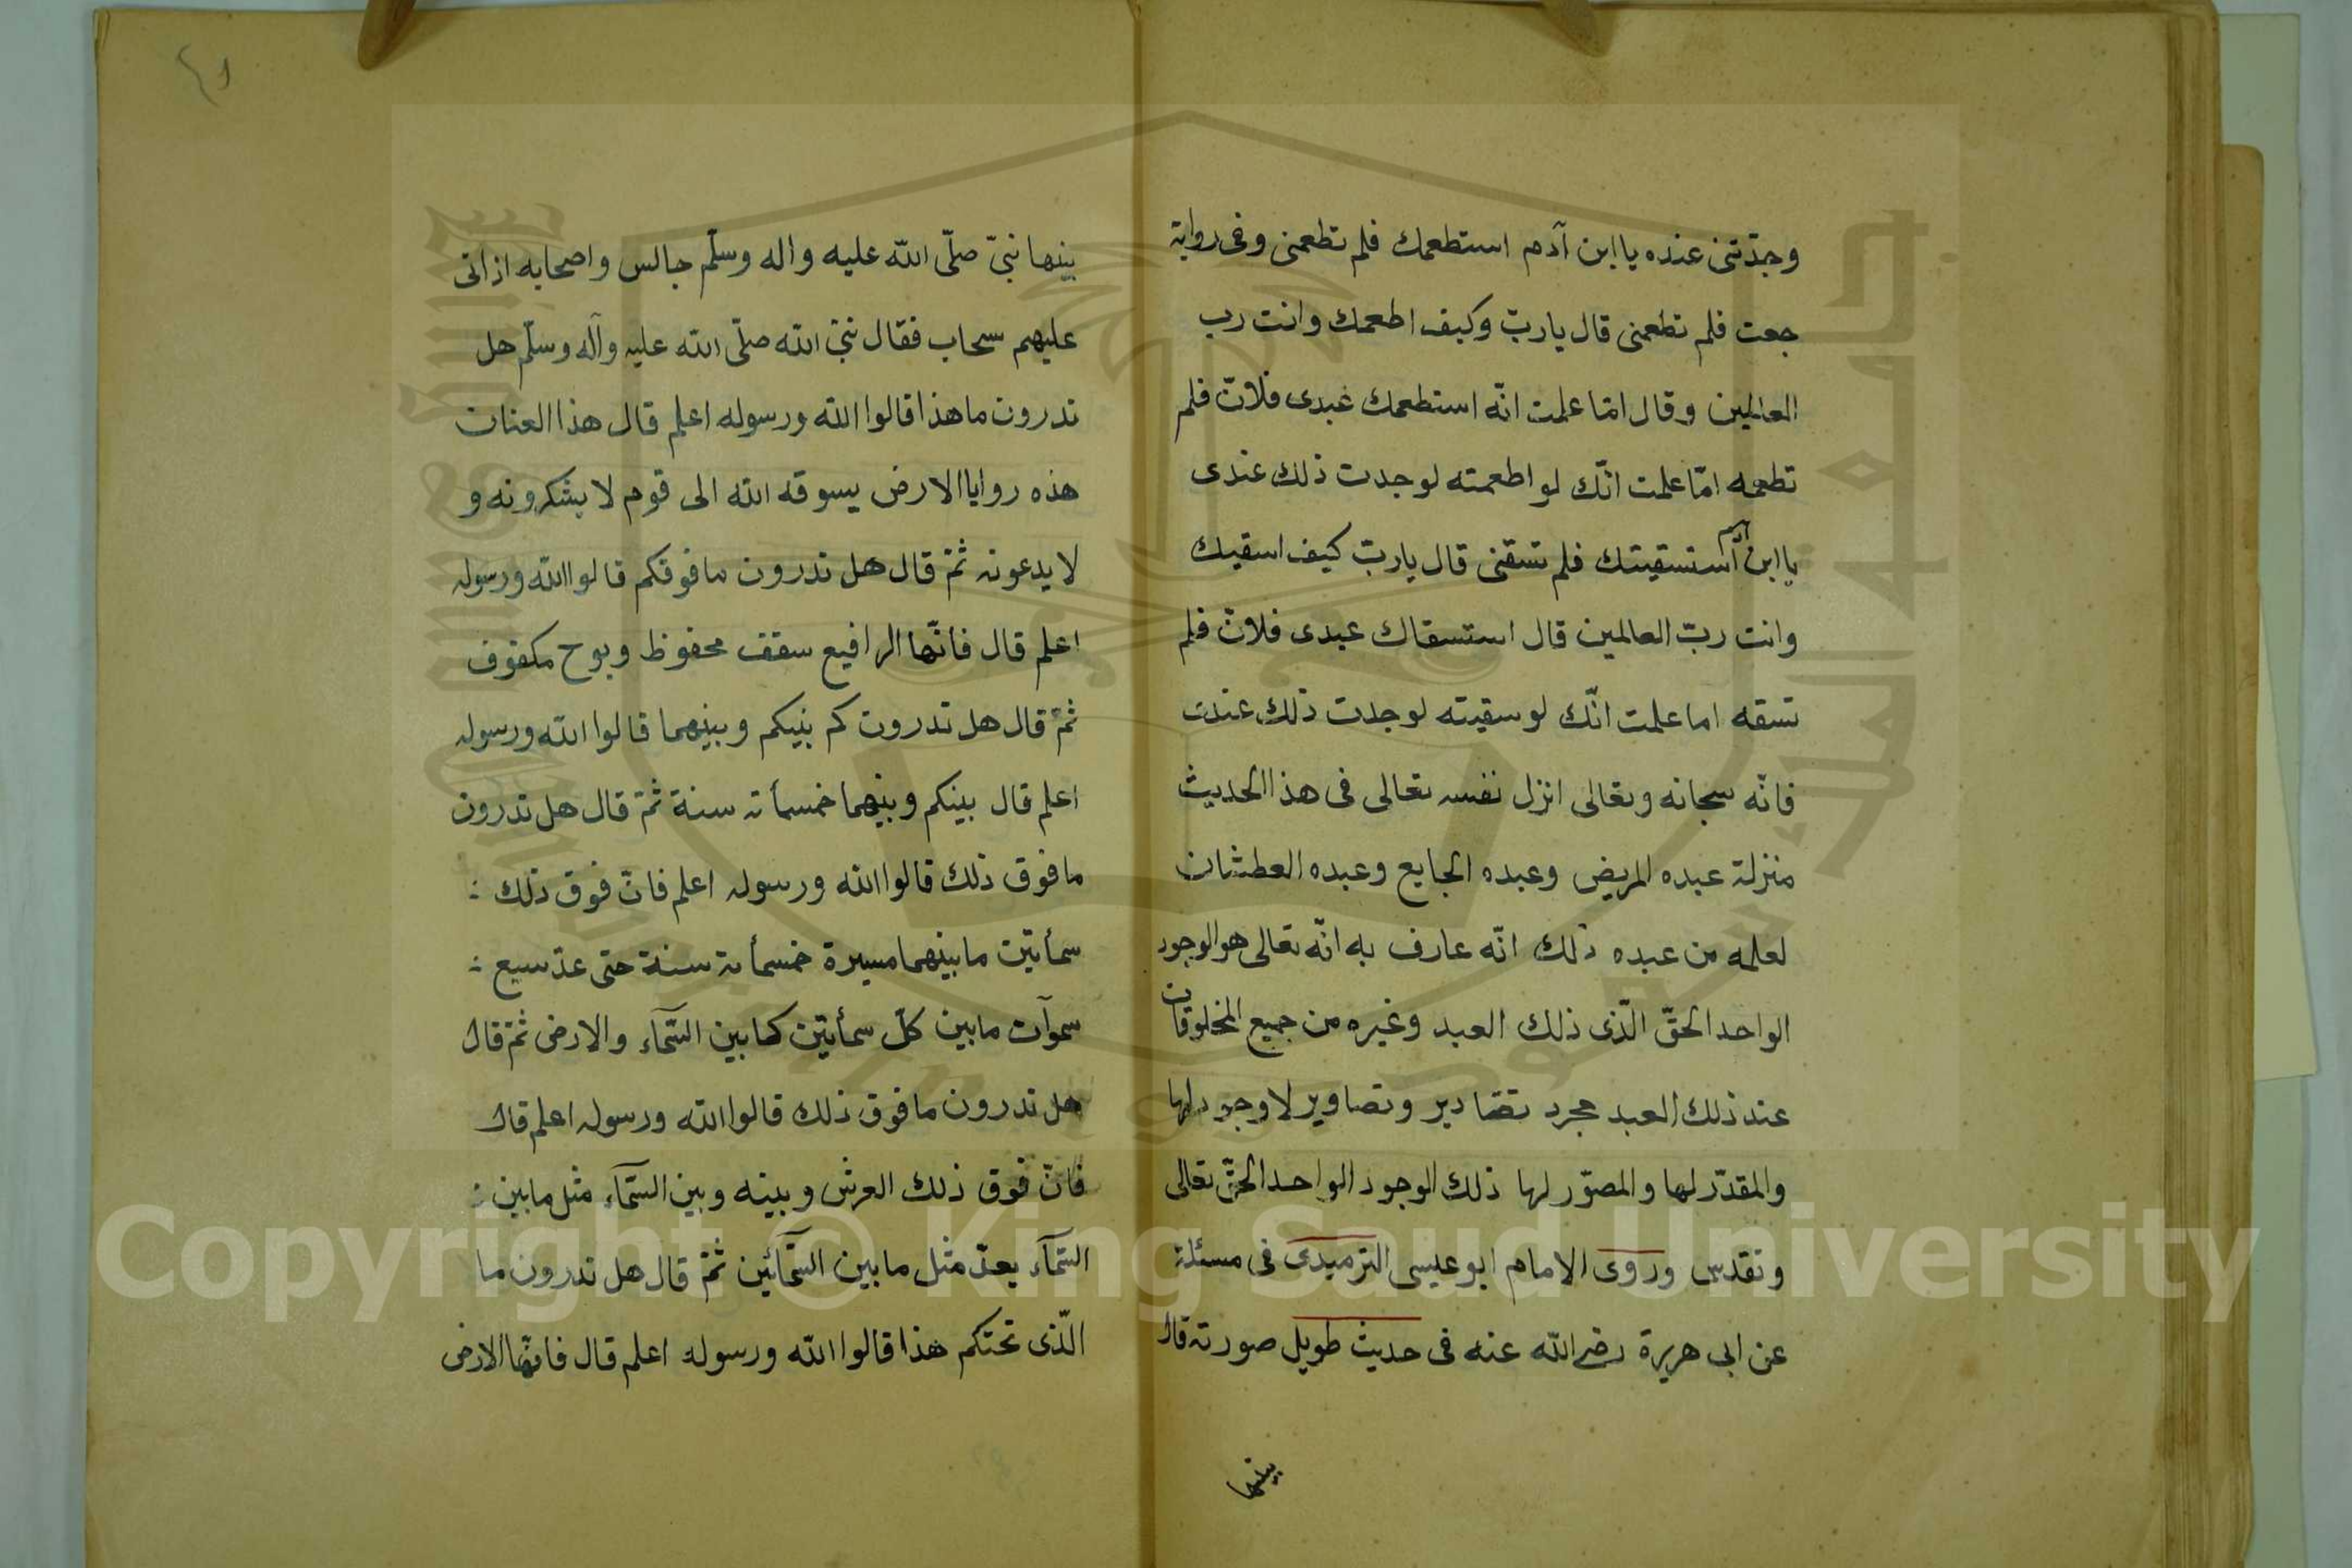 وجدتنى عنده يا ابن آدم استطعمك فلم تطعمنى وفى رواية
جعت فلم تطعمنى قال يا ربّ وكيف اطعمك وانت رب
العالمين وقال امّا علمت انّه استطعمك عبدى فلانّ فلم
تطعمه امّا علمت انّك لو اطعمته لوجدت ذلك عندى
يا ابن آدم استسقيتك فلم تسقنى قال يا ربّ كيف اسقيك
وانت ربّ العالمين قال استسقاك عبدى فلان فلم
تسقه اما علمت انّك لو سقيته لوجدت ذلك عندى
فانّه سبحانه وتعالى انزل نفسه تعالى فى هذا الحديث
منزلة عبده المريض وعبده الجايع وعبده العطشان
لعلمه من عبده ذلك انّه عارف به انّه تعالى هو الوجود
الواحد الحقّ الّذى ذلك العبد وغيره من جميع المخلوقات
عند ذلك العبد مجرد تقادير وتصاوير لا وجود لها
والمقدّر لها والمصوّر لها ذلك الوجود الواحد الحقّ تعالى
وتقدس وروى الامام ابو عيسى الترميدى فى مسئلة
عن ابى هريرة رضى الله عنه فى حديث طويل صورته قال
بينها
٤١
بينها نبىّ صلّى الله عليه واله وسلّم جالس واصحابه اذ اتى
عليهم سحاب فقال نبىّ الله صلّى الله عليه وآله وسلّم هل
تدرون ما هذا قالوا الله ورسوله اعلم قال هذا العنان
هذه روايا الارض يسوقه الله الى قوم لا يشكرونه و
لا يدعونه ثمّ قال هل تدرون ما فوقكم قالوا الله ورسوله
اعلم قال فانّها الرافيع سقف محفوظ وبوح مكفوف
ثمّ قال هل تدرون كم بينكم وبينهما قالوا الله ورسوله
اعلم قال بينكم وبينهما خمسمأته سنة ثمّ قال هل تدرون
ما فوق ذلك قالوا الله ورسوله اعلم فانّ فوق ذلك :
سمأتين ما بينهما مسيرة خمسمأته سنة حتى عدّ سبع :
سموآت ما بين كلّ سمأتين كما بين السّمآء والارض ثمّ قال
هل تدرون ما فوق ذلك قالوا الله ورسوله اعلم قال
فانّ فوق ذلك العرش وبينه وبين السّمآء مثل ما بين :
السّمآء بعدّ مثل ما بين السّمآئين ثمّ قال هل تدرون ما
الّذى تحتكم هذا قالوا الله ورسوله اعلم قال فانّها الارض
Copyright © King Saud University